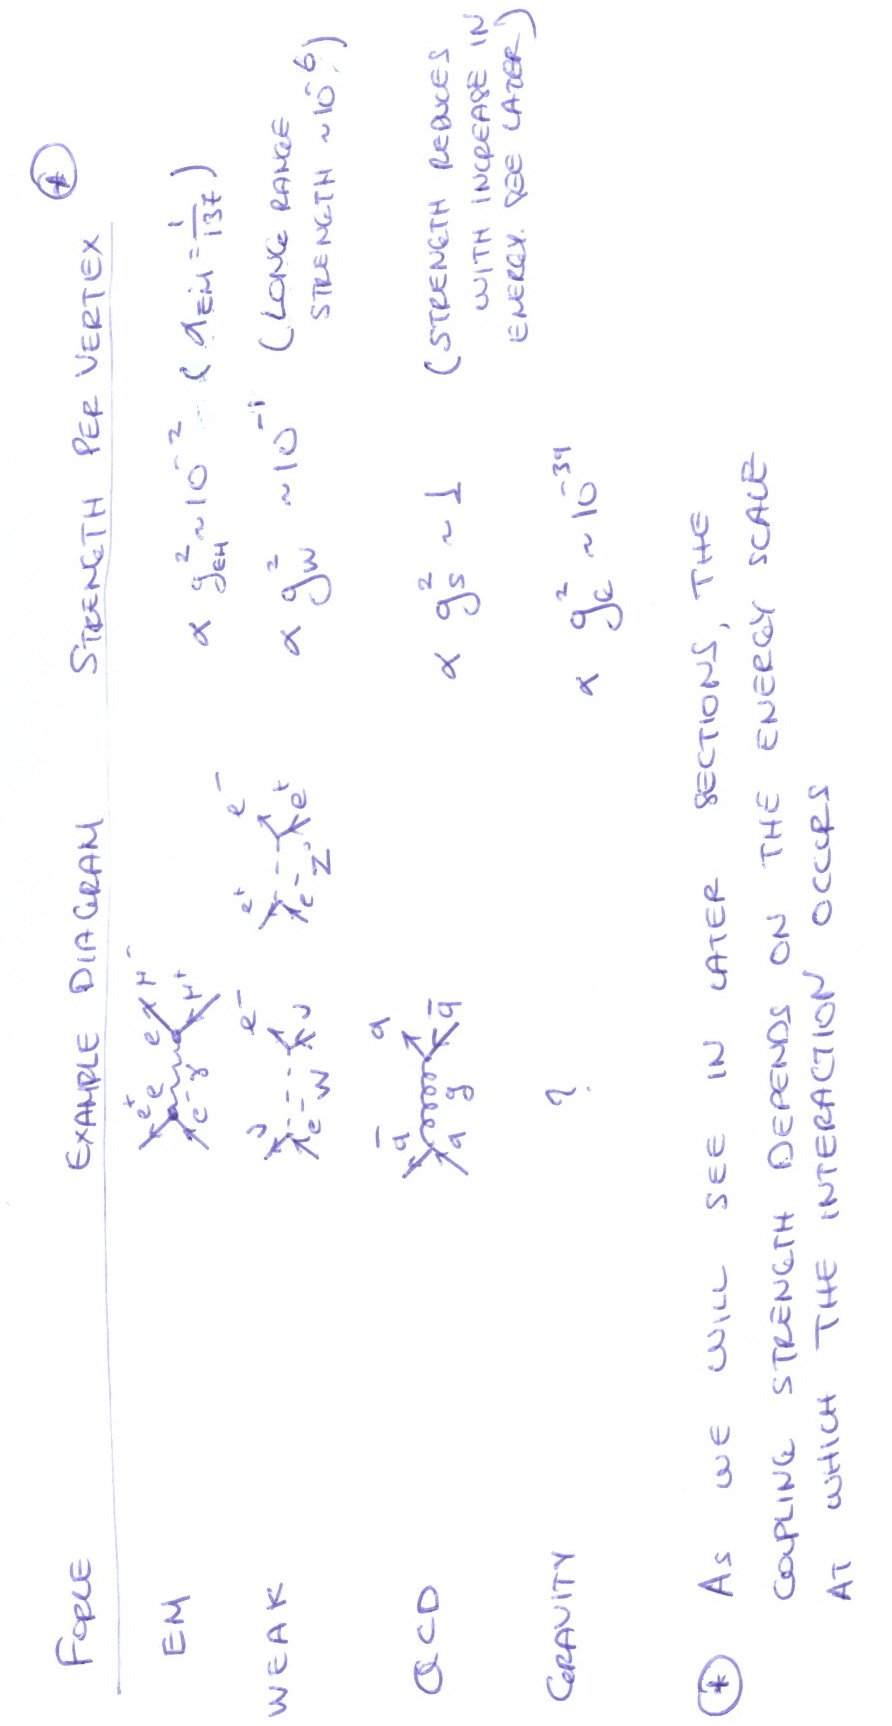 FORCE EXAMPLE DIAGRAM STRENGTH PER VERTEX *
EM e⁺ e⁻ e γ e μ⁻ μ⁺ ∝ g²EM ~ 10⁻² (αEM = 1/137)
WEAK ν e⁻ W e⁻ ν e⁺ e⁻ Z° e⁻ e⁺ ∝ g²W ~ 10⁻¹ (LONG RANGE
STRENGTH ~10⁻⁶)
QCD q̄ q g q q̄ ∝ g²S ~ 1 (STRENGTH REDUCES
WITH INCREASE IN
ENERGY. SEE LATER)
GRAVITY ? ∝ g²G ~ 10⁻³⁹
* AS WE WILL SEE IN LATER SECTIONS, THE
COUPLING STRENGTH DEPENDS ON THE ENERGY SCALE
AT WHICH THE INTERACTION OCCURS